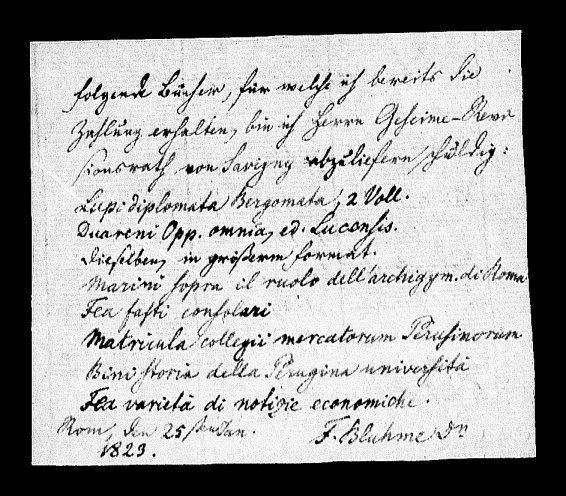 folgende Bücher, für welche ich bereits die
Zahlung erhalten, bin ich Herrn Geheime-Revi
sionsrath von Savigny abzuliefern schuldig:
Lupi diplomata Bergomata, 2 Voll.
Duareni Opp. omnia, ed. Lucensis.
dieselben, in größerm Format.
Marini sopra il ruolo dell'archigym. di Roma
Fea fasti consolari
Matricula collegii mercatorum Perusinorum
Bini storia della Perugina università
Fea varietà di notizie economiche.
Rom, den 25sten Jan.
1823.
F. Bluhme Dr